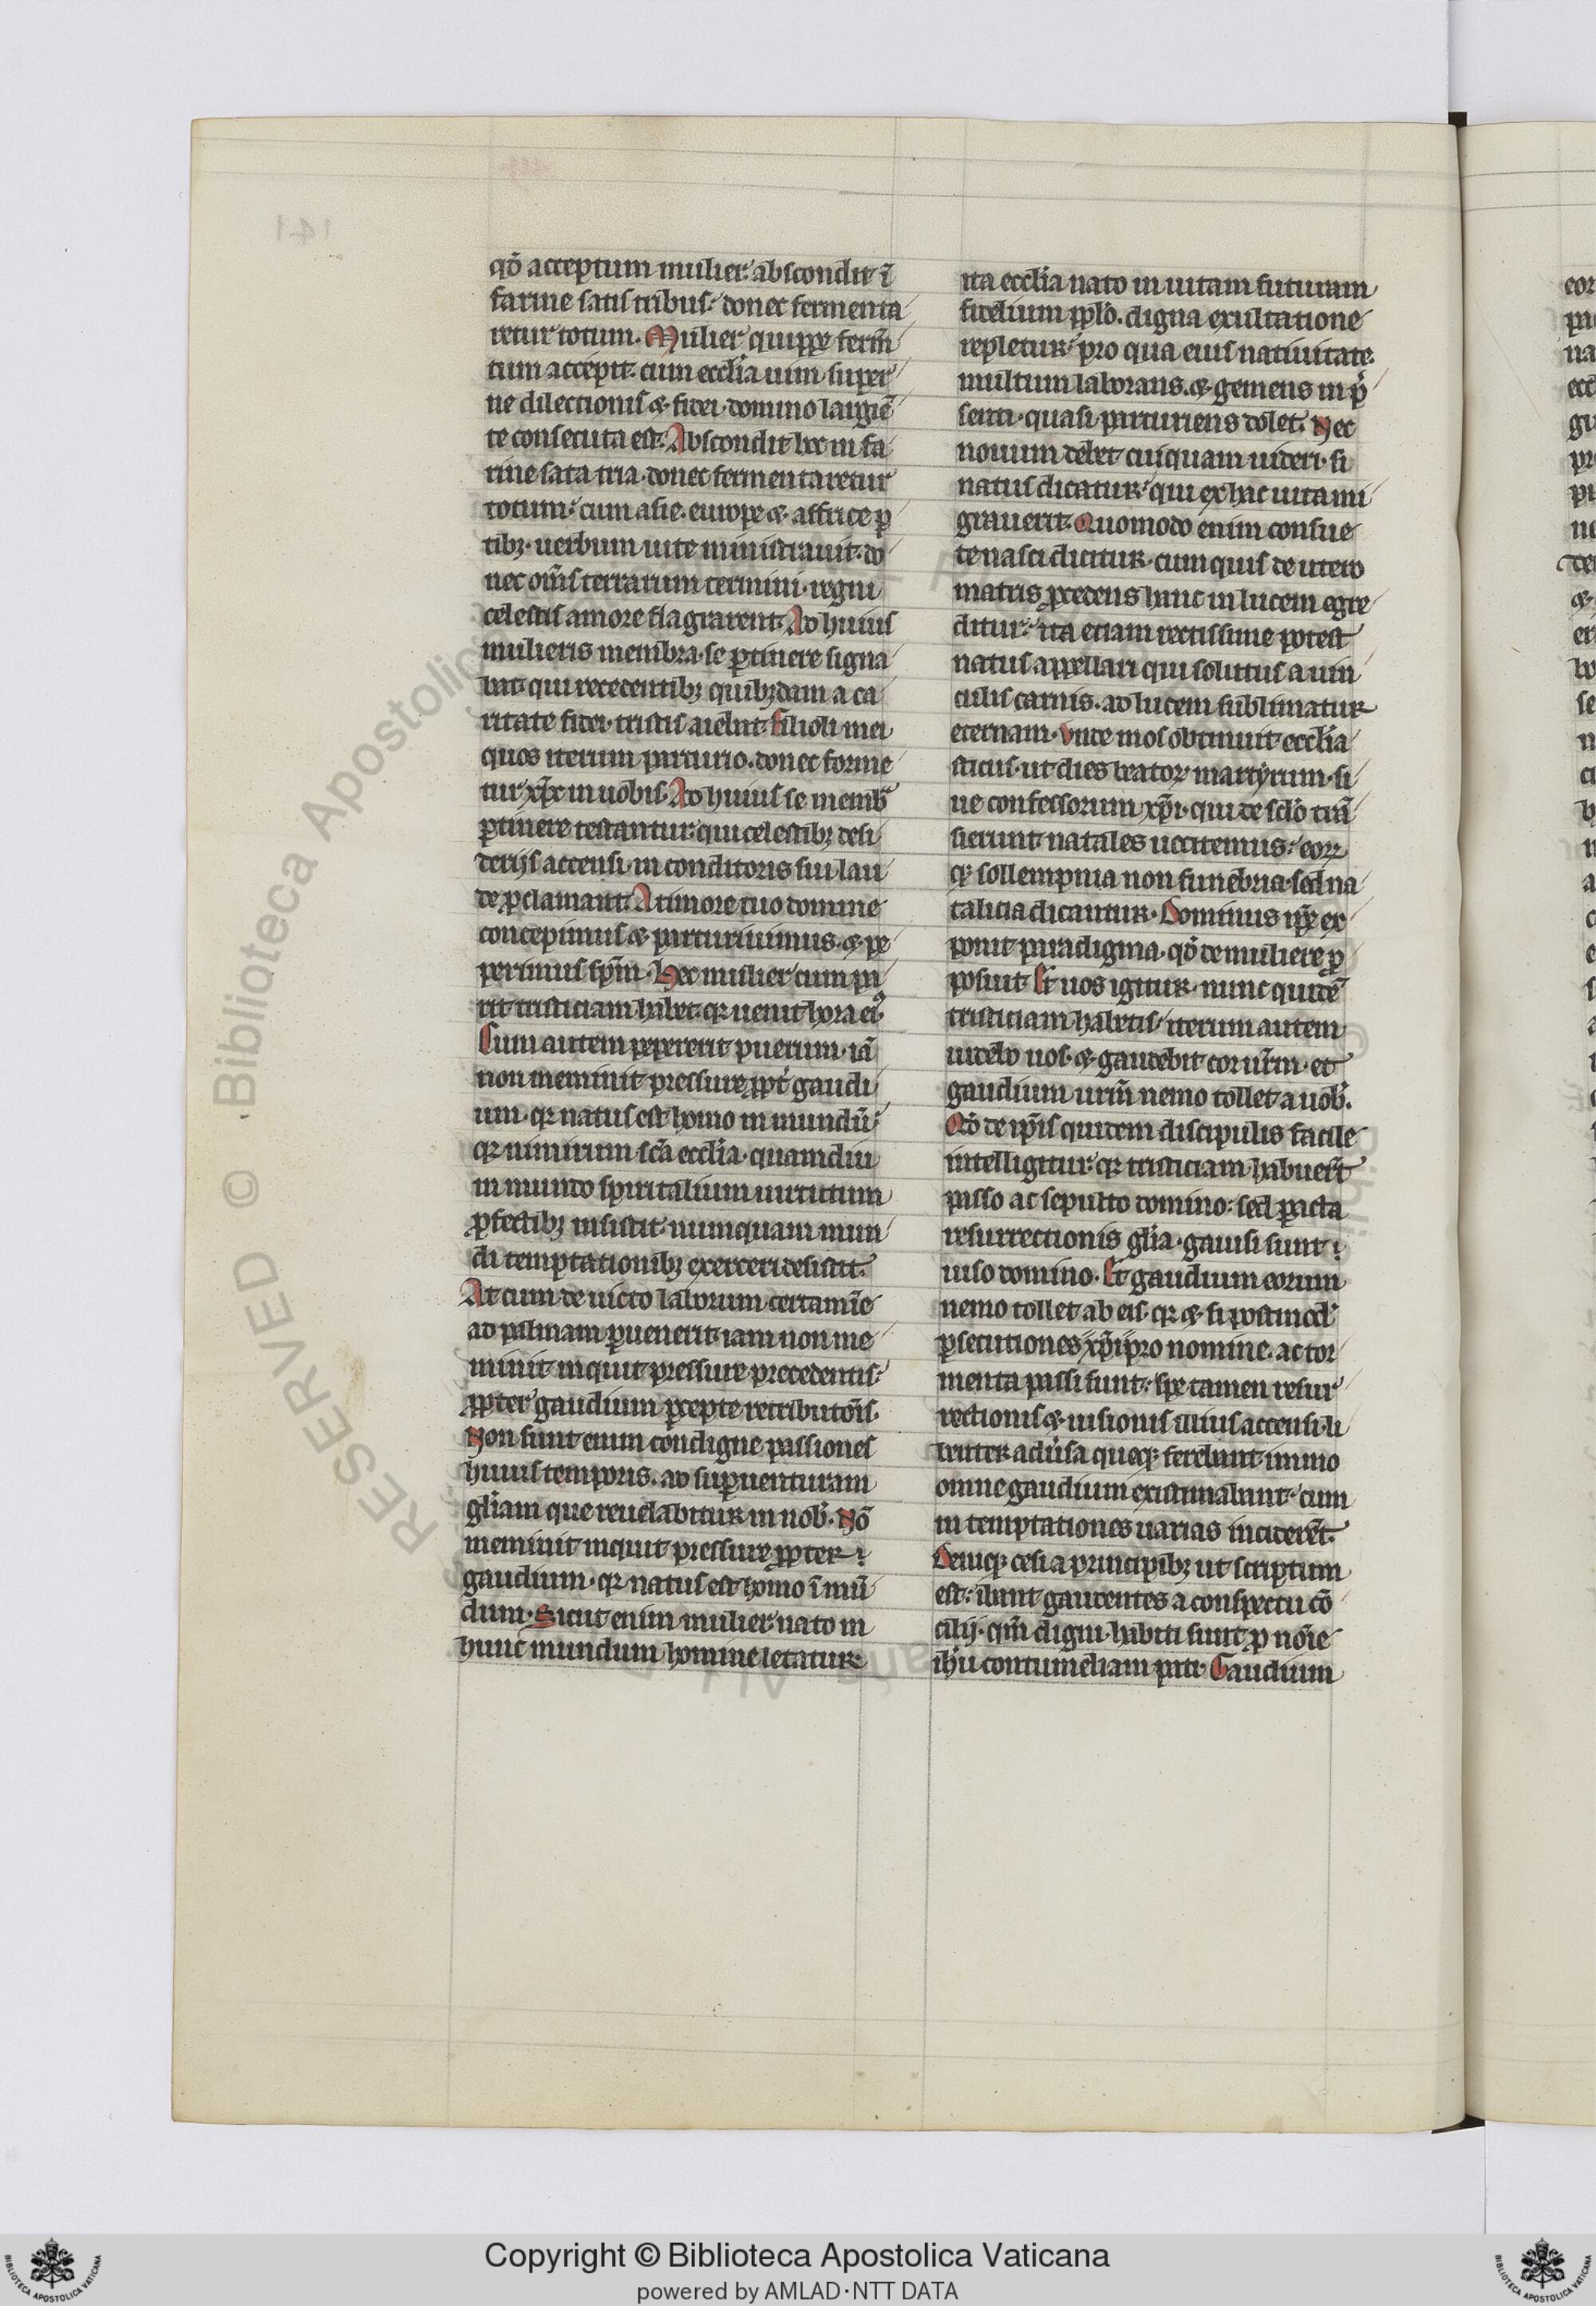 qd̄ acceptum mulier abscondit ī
farine satis tribus. donec fermenta
retur totum. Mulier quippe ferm̄
tum accepit. cum ecclīa uim super
ne dilectionis & fidei. domino largiē
te consecuta est. Abscondit hec in fa
rine sata tria. donec fermentaretur
totum. cum asie. europe & affrice ꝑ
tibꝫ. uerbum uite ministrauit. do
nec om̄s terrarum termini. regni
celestis amore flagrarent. Ad huius
mulieris membra. se ꝑtinere signa
bat. qui recedentibꝫ quibꝫdam a ca
ritate fidei. tristis aiebat. filioli mei
quos iterum parturio. donec forme
tur xp̄c in uobis. Ad huius se memb̄
ꝑtinere testantur. qui celestibꝫ desi
derijs accensi. in conditoris sui lau
de ꝓclamant. A timore tuo domine
concepimus & parturiuimus. & pe
perimus sp̄m. Hec mulier cum pa
rit tristiciam habet. qꝛ uenit hora eiꝰ.
Cum autem pepererit puerum. iā
non meminit pressure ꝓpt̄ gaudi
um. qꝛ natus est homo in mundū.
qꝛ nimirum sc̄a ecclīa. quamdiu
in mundo spiritalium uirtutum
ꝓfectibꝫ insistit. numquam mun
di temptationibꝫ exerceri desistit.
At cum deuicto laborum certamīe
ad palmam ꝑuenerit. iam non me
minit inquit pressure precedentis.
ꝓpter gaudium ꝑcepte retributōis.
Non sunt enim condigne passiones
huius temporis. ad suꝑuenturam
gl̄iam que reuelabitur in nob̄. Nō
meminit inquit pressure ꝓpter
gaudium. qꝛ natus est homo ī mū
dum. Sicut enim mulier nato in
hunc mundum homine letatur.
ita ecclīa nato in uitam futuram
fidelium ppl̄o. digna exultatione
repletur. pro qua eius natiuitate.
multum laborans. & gemens in p̄
senti. quasi parturiens dolet. Nec
nouum debet cuiquam uideri. si
natus dicatur. qui ex hac uita mi
grauerit. Quomodo enim consue
te nasci dicitur. cum quis de utero
matris ꝓcedens hanc in lucem egre
ditur. ita etiam rectissime potest
natus appellari qui solutus a uin
culis carnis. ad lucem sublimatur
eternam. Vnde mos obtinuit ecclīa
sticus. ut dies beatoꝝ martyrum. si
ue confessorum xp̄i. qui de sc̄lo trā
sierunt natales uocitemus. eoꝝ
qꝫ sollempnia non funebria. sed na
talicia dicantur. Dominus ip̄e ex
ponit paradigma. qd̄ de muliere ꝓ
posuit. Et uos igitur. nunc quidē
tristiciam habetis. iterum autem
uidebo uos. & gaudebit cor ur̄m. et
gaudium urm̄ nemo tollet a uob̄.
Qd̄ de ip̄is quidem discipulis facile
intelligitur. qꝛ tristiciam habuer̄t
passo ac sepulto domino. sed ꝑacta
resurrectionis gl̄ia. gauisi sunt
uiso domino. Et gaudium eorum
nemo tollet ab eis. qꝛ & si postmod̄
ꝑsecutiones xp̄i pro nomine. ac tor
menta passi sunt. spe tamen resur
rectionis & uisionis illius accensi. li
benter aduersa queqꝫ ferebant. immo
omne gaudium existimabant. cum
in temptationes uarias inciderēt.
Deniqꝫ cesi a principibꝫ ut scriptum
est. ibant gaudentes a conspectu cō
cilij. qm̄ digni habiti sunt ꝓ noīe
ih̄u contumeliam pati. Gaudium
141
RESERVED © Biblioteca Apostolica
Copyright © Biblioteca Apostolica Vaticana
powered by AMLAD·NTT DATA